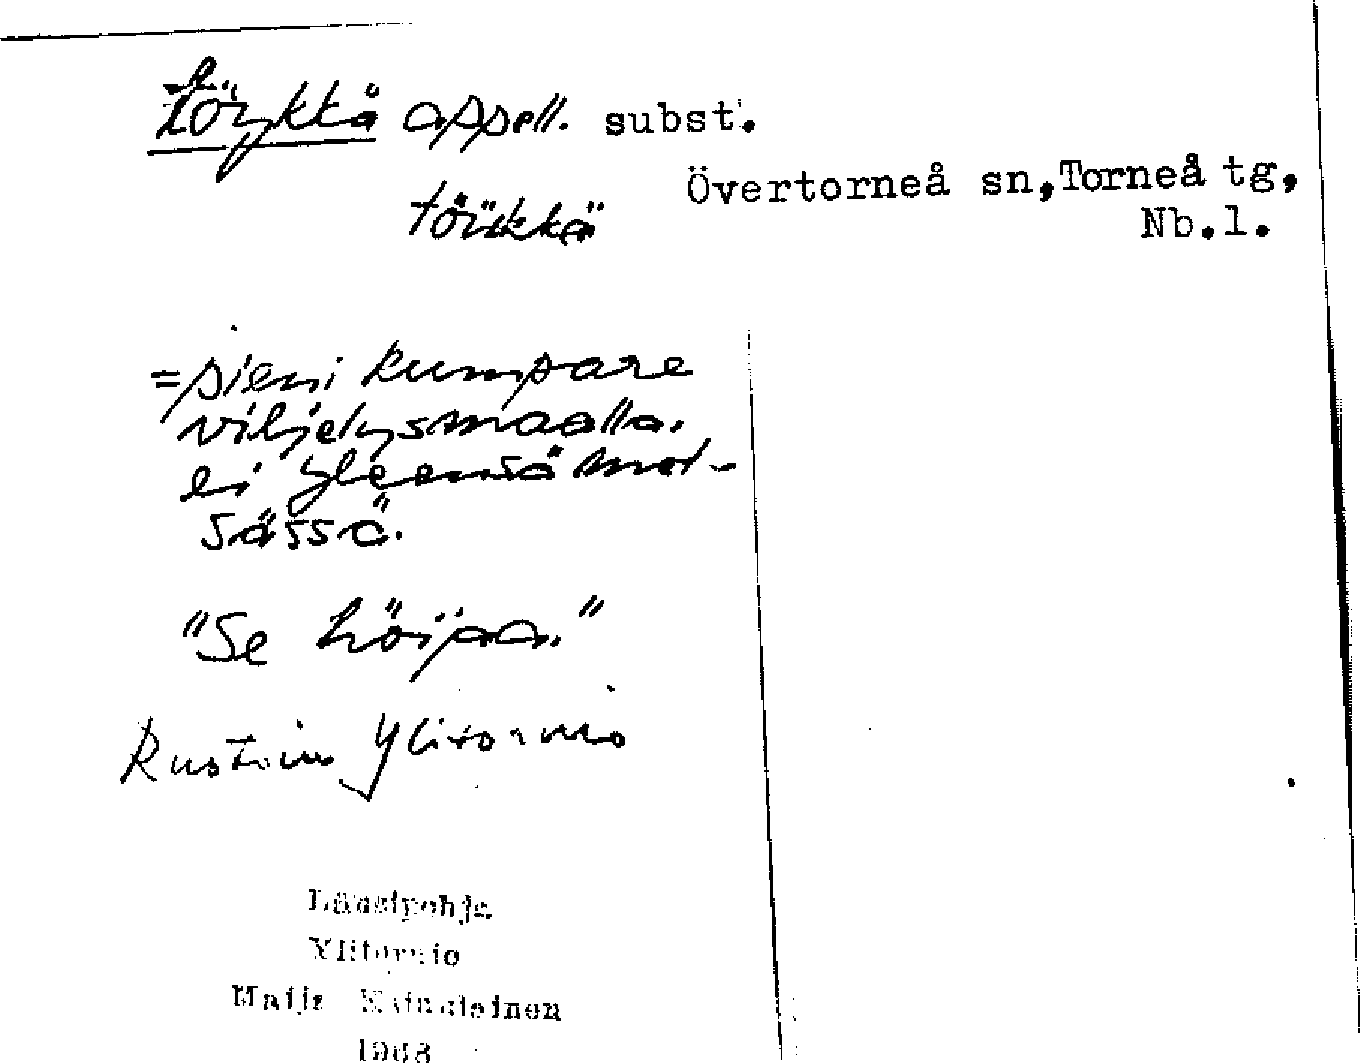 töykkä appell. subst.
Övertorneå sn, Torneå tg,
töikkä Nb.l.
=pieni kumpare
viljelysmaalla.
ei yleensä met-
sässä.
"Se höijaa."
Ruotsin Ylitornio
Länsipohja
Ylitornio
Maija
1968